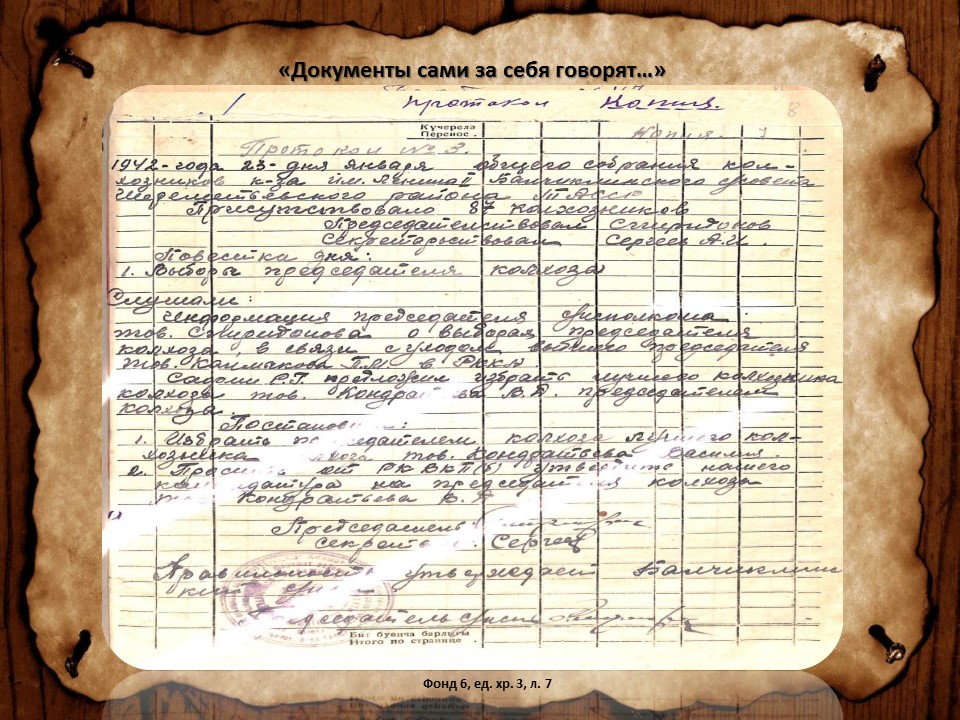 «Документы сами за себя говорят…»
Протокол Копия.
8
Кучереле
Перенос.
Копия. 7
Протокол № 3.
1942-года 23-дня января общего собрания кол-
хозников к-за им. Ленина Банчиклинского совета
Шереметьевского района ТАССР
Присутствовало 87 колхозников
Председательствовал Спиридонов
Секретарьствовал Сергеев А.И.
Повестка дня:
1. Выборы председателя колхоза
Слушали:
Информация председателя
тов. Спиридонова о выборах председателя
колхоза, в связи с уходом бывшего председателя
тов. П.М. в РККА
С.Г. предложил избрать лучшего колхозника
колхоза тов. Кондратьева В. председателем
колхоза.
Постановили:
1. Избрать колхоза лучшего кол-
хозника тов. Кондратьева Василия.
2. РК ВКП(б) утвердить нашего
на председателя колхоза
Кондратьева В.
Председатель
Сергеев
утверждает
Бит буенча барлыгы
Итого по странице.
Фонд 6, ед. хр. 3, л. 7